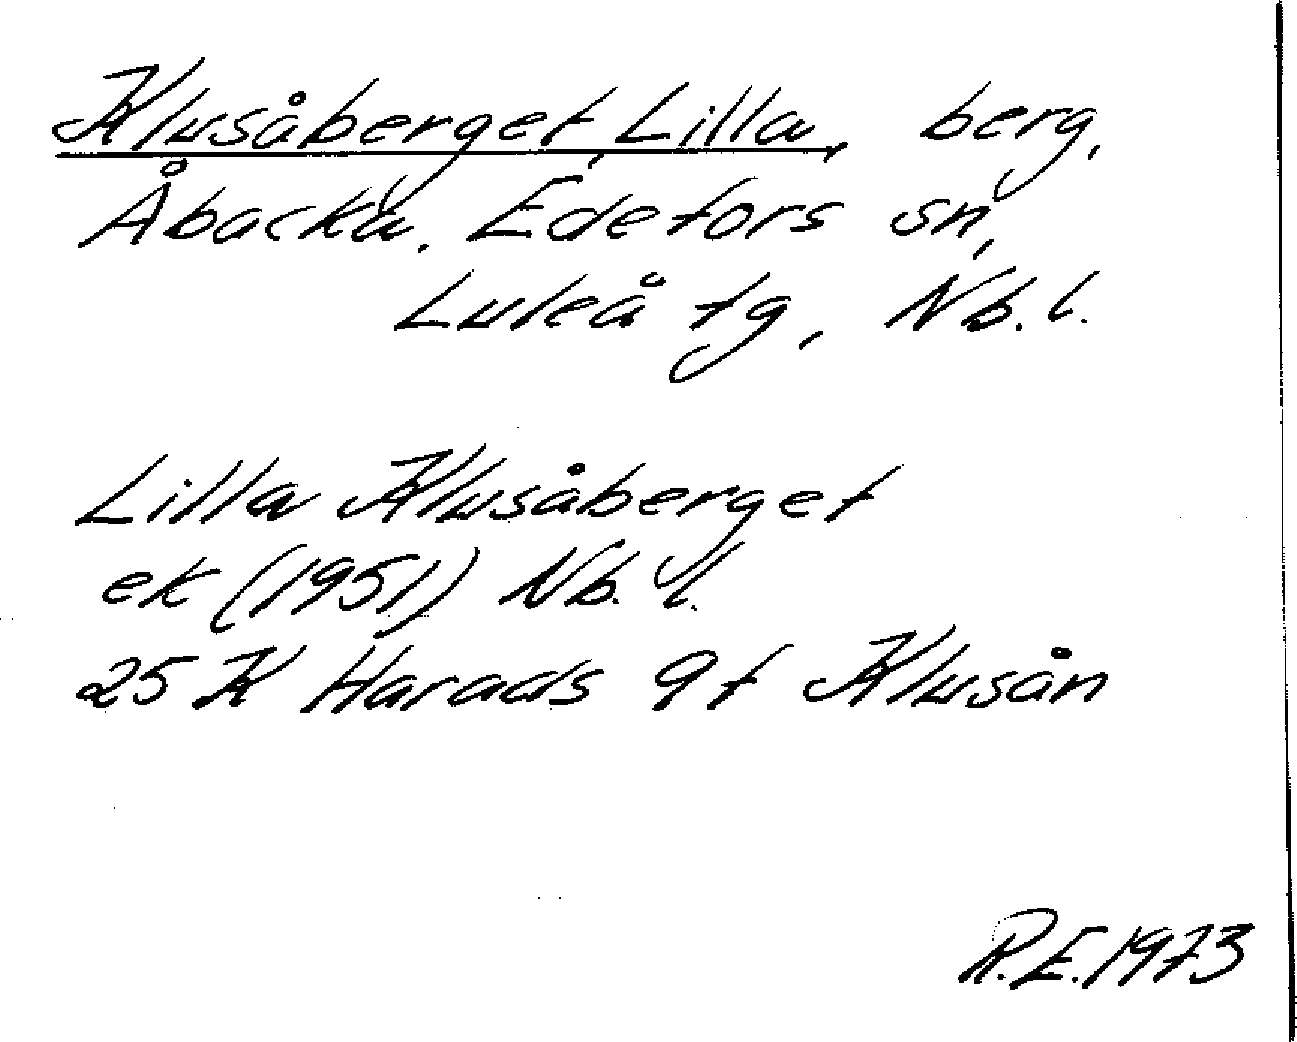 Klusåberget, Lilla, berg,
Åbacka, Edefors sn,
Luleå tg, Nb. l.
Lilla Klusåberget
ek (1951) Nb. l.
25 K Harads 9f Klusån
R.E. 1973